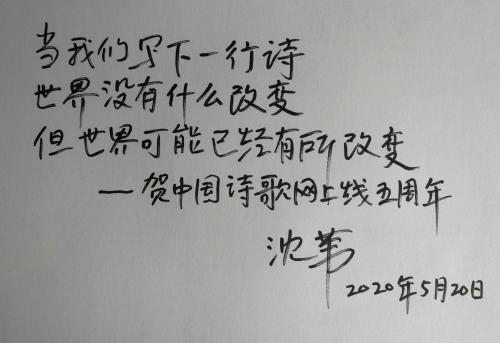 当我们写下一行诗
世界没有什么改变
但世界可能已经有所改变
——贺中国诗歌网上线五周年
沈苇
2020年5月20日